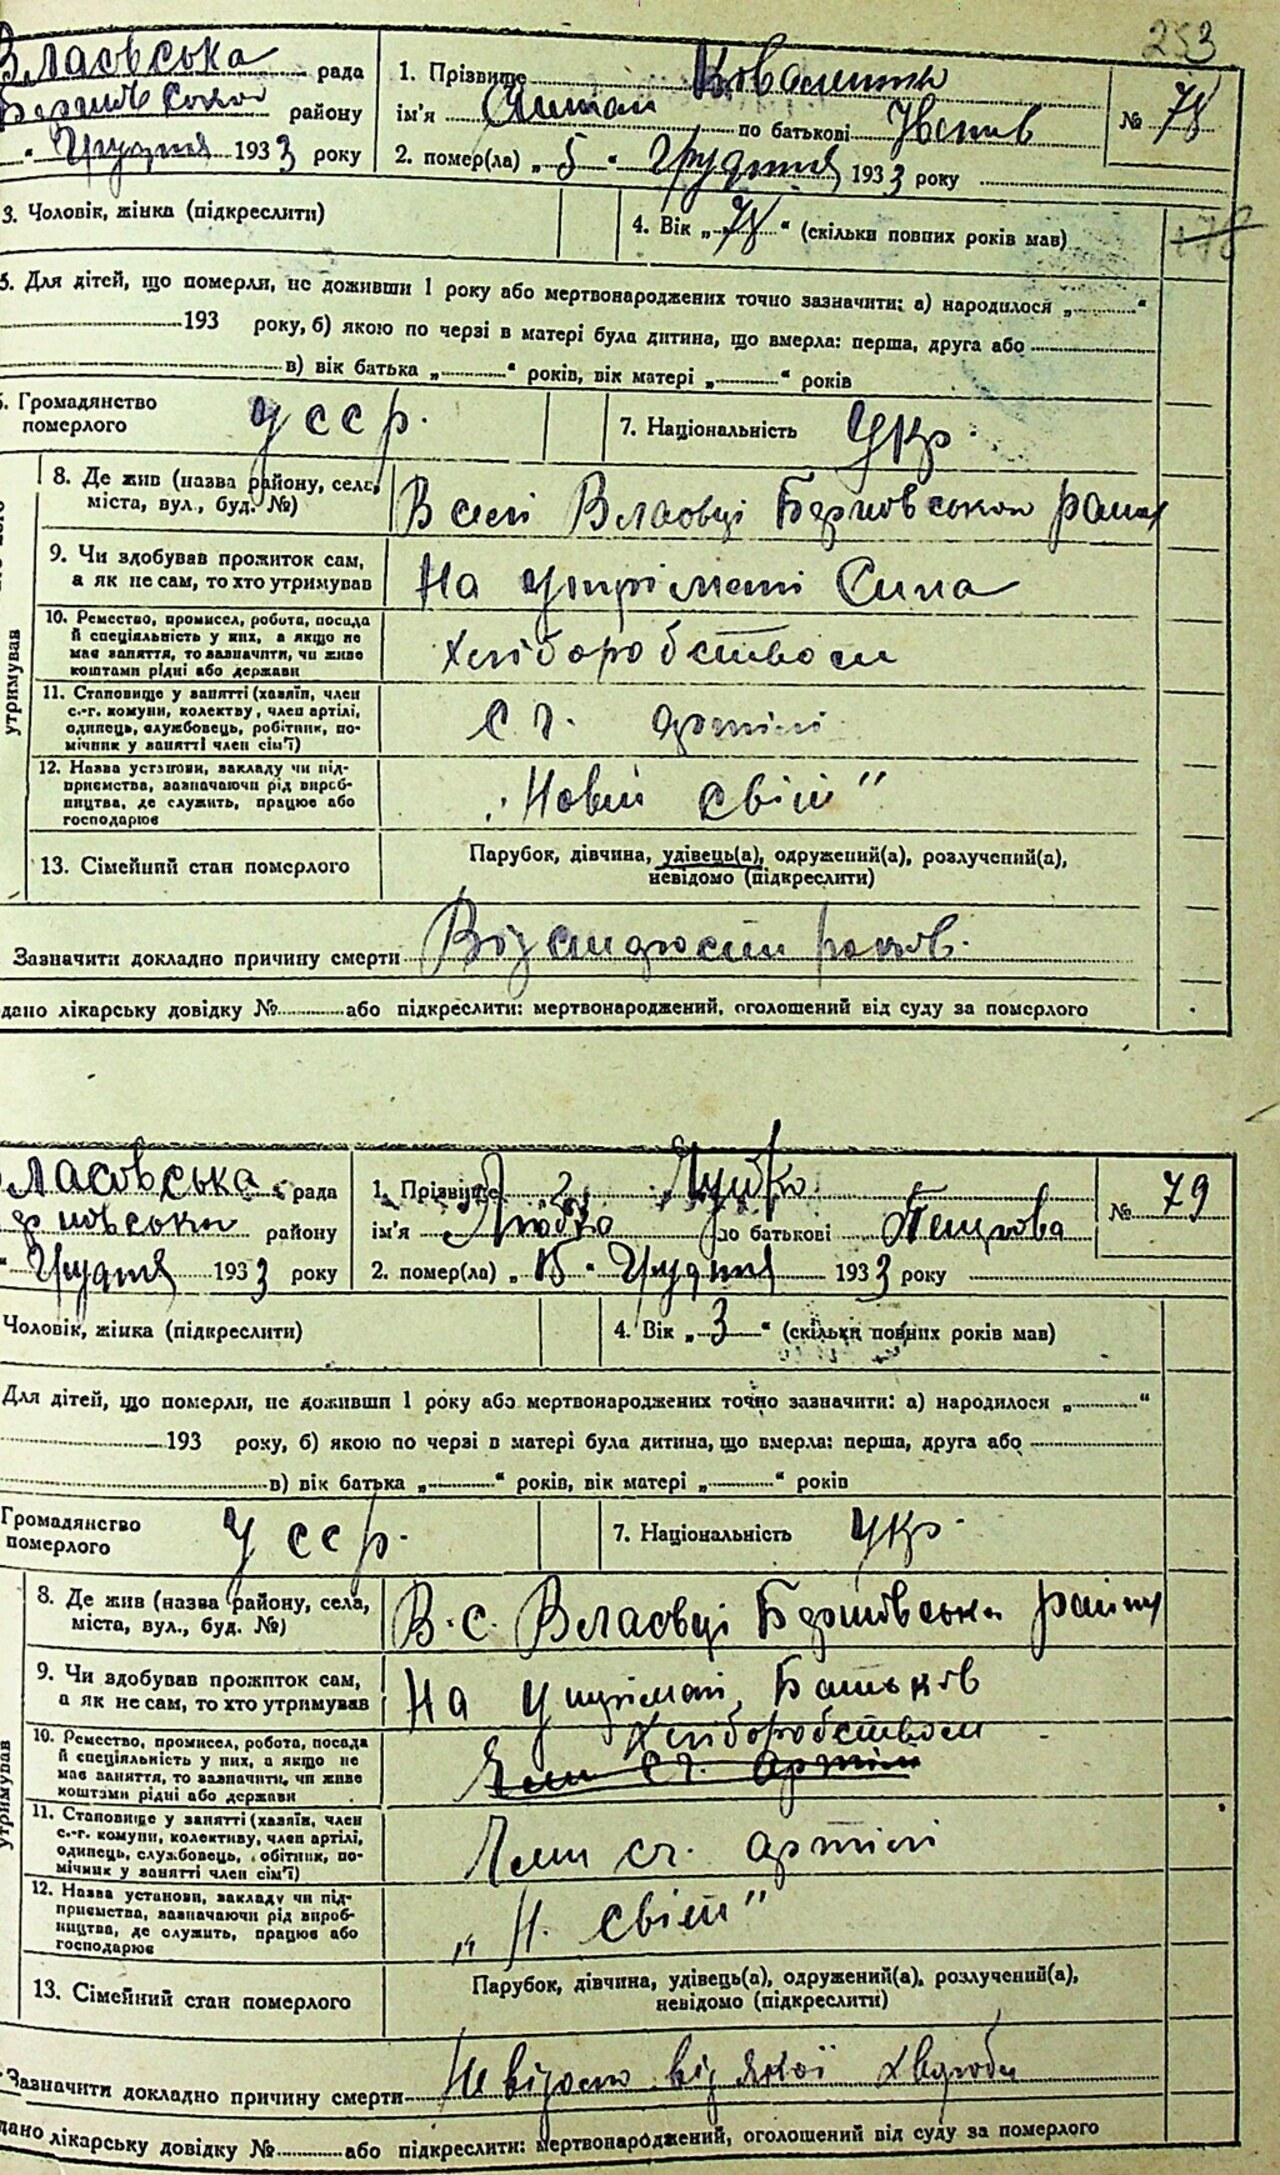 253
Власовська рада
району
Грудня 1933 року
1. Прізвище
ім'я по батькові
2. помер(ла) „ 5 “ Грудня 1933 року
№ 78
3. Чоловік, жінка (підкреслити)
4. Вік „ 78 “ (скільки повних років мав)
5. Для дітей, що померли, не доживши 1 року або мертвонароджених точно зазначити: а) народилося „ “
193 року, б) якою по черзі в матері була дитина, що вмерла: перша, друга або
в) вік батька „ “ років, вік матері „ “ років
6. Громадянство
померлого
УССР.
7. Національність Укр.
8. Де жив (назва району, села,
міста, вул., буд. №)
В селі Власовці району
9. Чи здобував прожиток сам,
а як не сам, то хто утримував
На утріманні Сина
10. Ремество, промисел, робота, посада
й спеціяльність у них, а якщо не
має заняття, то зазначити, чи живе
коштами рідні або держави
Хліборобством
11. Становище у занятті (хазяїн, член
с.-г. комуни, колективу, член артілі,
одинець, службовець, робітник, по-
мічник у занятті член сім'ї)
с г. артілі
12. Назва установи, закладу чи під-
приємства, зазначаючи рід вироб-
ництва, де служить, працює або
господарює
„Новій світ“
13. Сімейний стан померлого
Парубок, дівчина, удівець(а), одружений(а), розлучений(а),
невідомо (підкреслити)
утримував
Зазначити докладно причину смерти років.
дано лікарську довідку № або підкреслити: мертвонароджений, оголошений від суду за померлого
Власовська рада
району
Грудня 1933 року
1. Прізвище
ім'я по батькові Петрова
2. помер(ла) „ 15 “ Грудня 1933 року
№ 79
Чоловік, жінка (підкреслити)
4. Вік „ 3 “ (скільки повних років мав)
Для дітей, що померли, не доживши 1 року або мертвонароджених точно зазначити: а) народилося „ “
193 року, б) якою по черзі в матері була дитина, що вмерла: перша, друга або
в) вік батька „ “ років, вік матері „ “ років
Громадянство
померлого
УССР.
7. Національність Укр.
8. Де жив (назва району, села,
міста, вул., буд. №)
В. с. Власовці району
9. Чи здобував прожиток сам,
а як не сам, то хто утримував
На Батьків
10. Ремество, промисел, робота, посада
й спеціяльність у них, а якщо не
має заняття, то зазначити, чи живе
коштами рідні або держави
Хліборобством
Член сг. артілі
11. Становище у занятті (хазяїн, член
с.-г. комуни, колективу, член артілі,
одинець, службовець, обітник, по-
мічник у занятті член сім'ї)
Член сг. артілі
12. Назва установи, закладу чи під-
приємства, зазначаючи рід вироб-
ництва, де служить, працює або
господарює
„Н. світ“
13. Сімейний стан померлого
Парубок, дівчина, удівець(а), одружений(а), розлучений(а),
невідомо (підкреслити)
утримував
Зазначити докладно причину смерти Невідомо від якої хвороби
дано лікарську довідку № або підкреслити: мертвонароджений, оголошений від суду за померлого